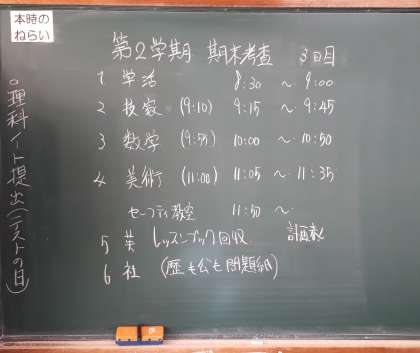 本時の
ねらい
第2学期 期末考査 3日目
1 学活 8:30 〜 9:00
2 技家 (9:10) 9:15 〜 9:45
3 数学 (9:55) 10:00 〜 10:50
4 美術 (11:00) 11:05 〜 11:35
セーフティ教室 11:50 〜
5 英 レッスンブック回収 計画表
6 社 (歴も公も問題組)
○理科ノート提出(テストの日)